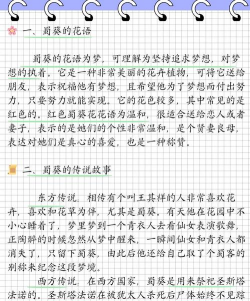 一、蜀葵的花语
蜀葵的花语为梦，可理解为坚持追求梦想，对梦
想的执着。它是一种非常美丽的花卉植物，可将它送给
朋友，表示祝福他有梦想，且希望他为了梦想而付出努
力，只要努力就能实现。它的花色较多，其中常见的是
红色的，红色蜀葵花花语为温和，很适合送给恋人或者
妻子，表示的是她们的个性非常温和，是个贤妻良母，
表达对他们是真心的喜爱，也是一种称赞。
二、蜀葵的传说故事
东方传说，相传有个叫王其祥的人非常喜欢花
卉，喜欢和花草为伴，尤其是蜀葵，有天他在花园中不
小心睡着了，梦里梦到一个青衣人去看仙女表演歌舞，
正陶醉的时候忽然从梦中醒来，一瞬间仙女和青衣人都
消失了，只留下蜀葵，由此后他还给自己取了个蜀客的
别称来纪念这段梦境。
西方传说，在西方国家，蜀葵是用来祭祀圣斯塔
法诺的，圣斯塔法诺在被犹太人杀死后尸体始终不见